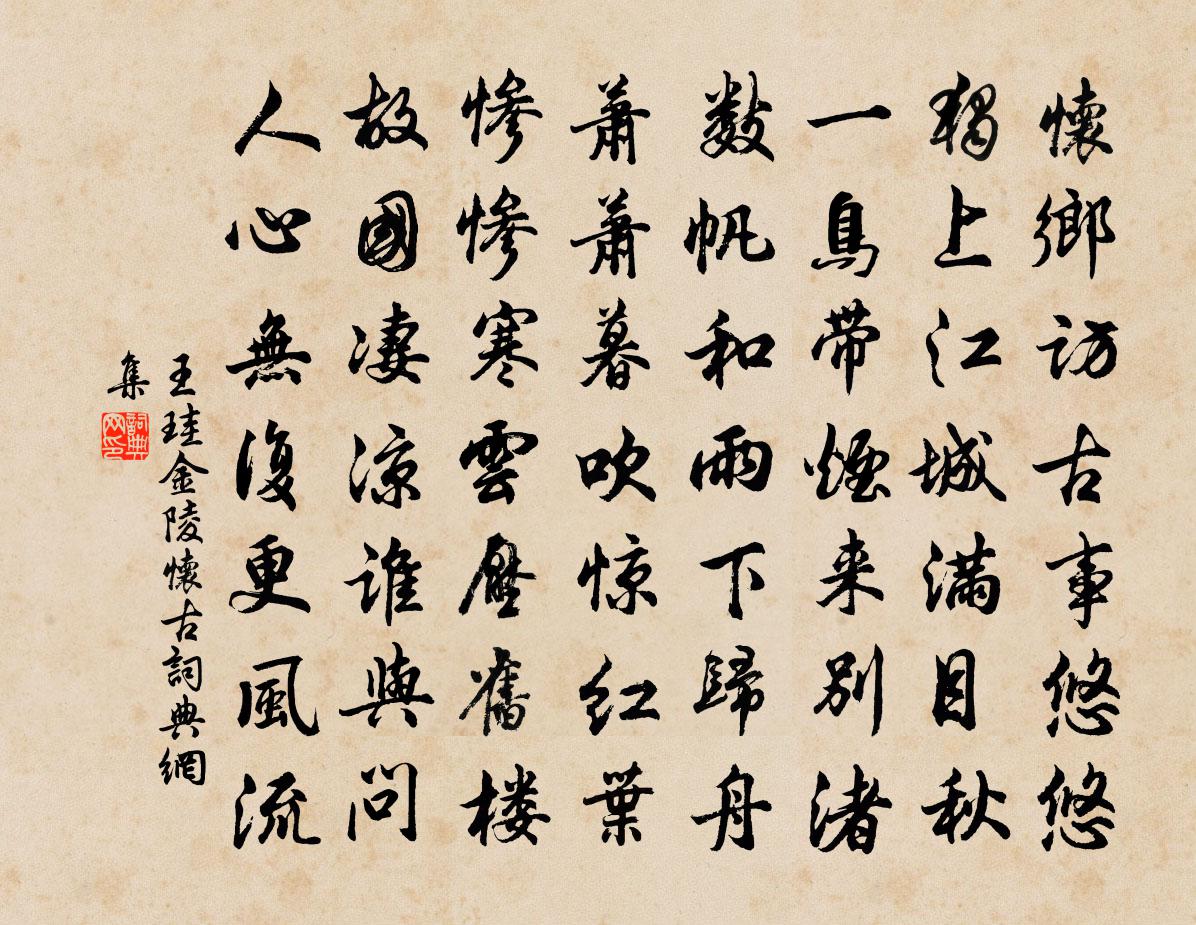 懷鄉訪古事悠悠
獨上江城滿目秋
一鳥帶煙来別渚
數帆和雨下歸舟
蕭蕭暮吹惊红葉
慘慘寒雲壓舊楼
故國凄凉誰與問
人心無復更風流
王珪金陵懷古詞典網
集
詞典网印